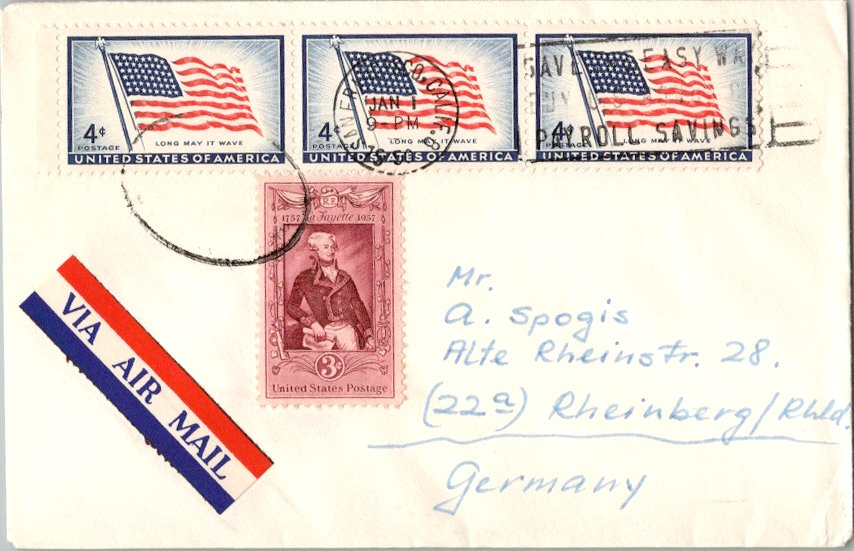 4¢
POSTAGE
LONG MAY IT WAVE
UNITED STATES OF AMERICA
4¢
POSTAGE
LONG MAY IT WAVE
UNITED STATES OF AMERICA
4¢
POSTAGE
LONG MAY IT WAVE
UNITED STATES OF AMERICA
CALIF.
JAN 1
9-PM
SAVE EASY WA
PAYROLL SAVINGS
RF
1757 La Fayette 1957
3¢
United States Postage
VIA AIR MAIL
Mr.
A. Spogis
Alte Rheinstr. 28.
(22a) Rheinberg/Rhld.
Germany